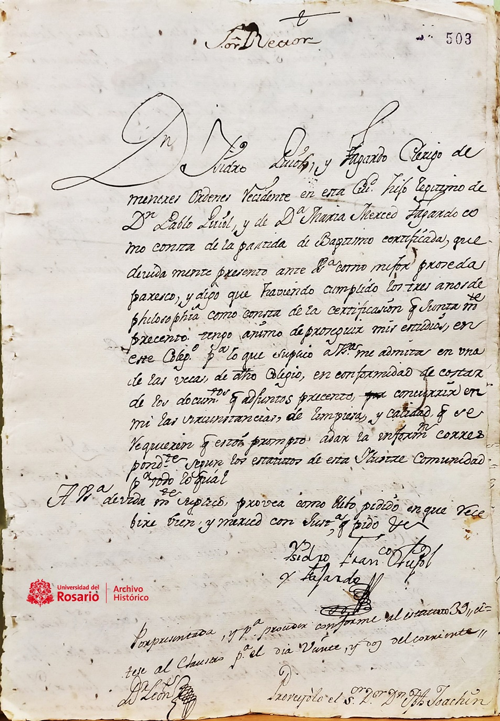 Sor Rector
503
Dn Isidro Pujol, y Fagardo Clerigo de
menores Ordenes Recidente en esta Ciu. hijo legitimo de
Dn Pablo Pujol, y de Da Maria Merced Fagardo co
mo consta de la partida de Baptismo certificada, que
devida mente presento ante Va como mejor proceda
paresco, y digo que haviendo cumplido los tres anos de
philosophia como consta de la certificasion q junta mte
precento tengo animo de proseguir mis estudios, en
este Colego pa lo que suplico a Va me admita en una
de las vecas de dho Colegio, en conformidad de costar
de los documtos q adjuntos precento, concurrir en
mi las sircunstancias, de limpiesa, y calidad q se
requieren q estoy prompto, adar la informn corres
pondte segun los estatutos de esta Ilustre Comunidad
pa todo lo qual
A Va devida mte suplico, provea como llevo pedido en que rece
bire bien, y merced con Justa q pido &c
Isidro Franco Pujol
y Fafardo
Universidad del
Rosario
Archivo
Histórico
Por presentada, y pa proveer conforme al estatuto 3o, ci-
tese al Claustro pa el dia Veinte, y dos del corriente
Dr León
Proveyolo el Sor Dr Dn Joachin